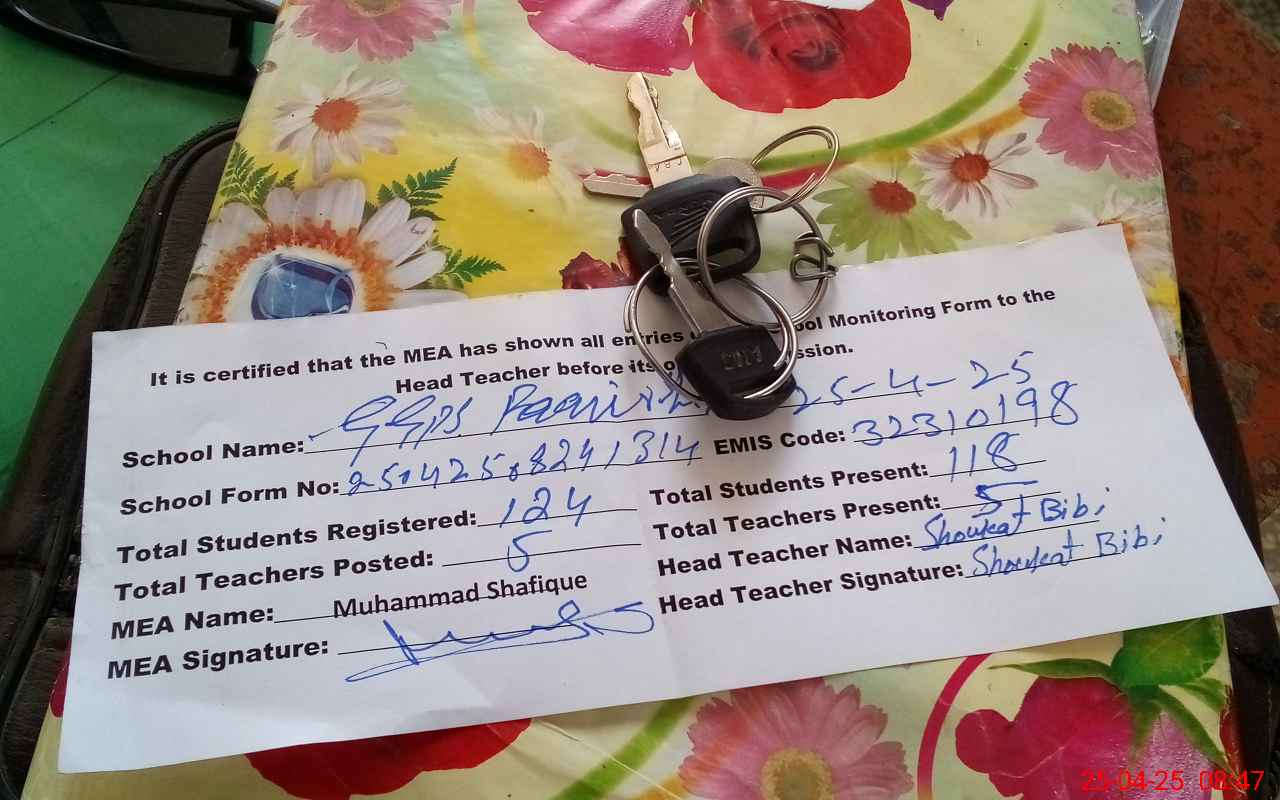 It is certified that the MEA has shown all entries ool Monitoring Form to the
Head Teacher before its ssion.
School Name: GGPS 25-4-25
School Form No: EMIS Code: 32310198
Total Students Registered: 124 Total Students Present: 118
Total Teachers Posted: 5 Total Teachers Present: 5
MEA Name: Muhammad Shafique Head Teacher Name: Showkat Bibi
MEA Signature: Head Teacher Signature: Showkat Bibi
25-04-25 08:47